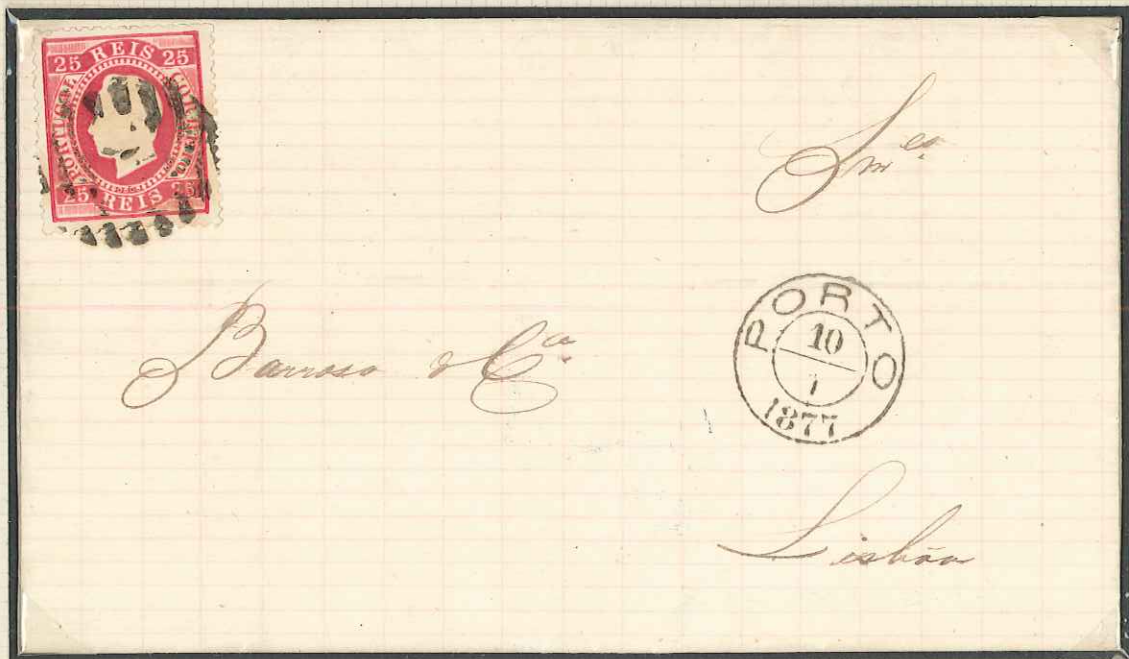 25 REIS 25
PORTUGAL
CORREIO
25 REIS 25
Barroso & Cª
PORTO
10
7
1877
Lisbôa